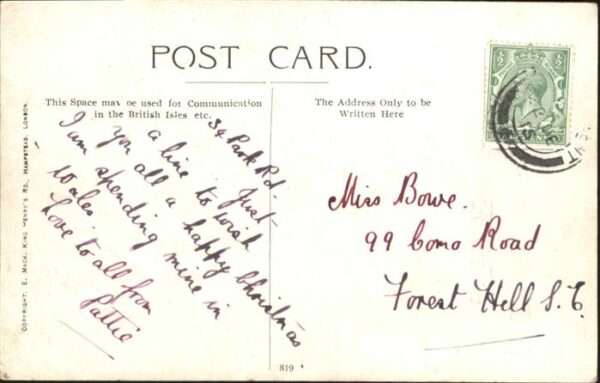 POST CARD.
This Space may be used for Communication
in the British Isles etc.
The Address Only to be
Written Here
34 Park Rd.
Just
a line to wish
you all a happy Christmas
I am spending mine in
Wales
Love to all from
Pattie
Miss Bowe.
99 Como Road
Forest Hell S.E.
COPYRIGHT. E. MACK, KING HENRY'S RD., HAMPSTEAD, LONDON.
819
½ ½